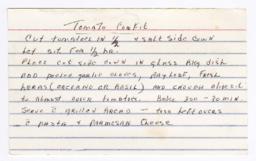 Tomato Confit
Cut tomatoes in 1/2 & salt side down
Let sit for 1/2 hr.
Place cut side down in glass bkg dish
Add peeled garlic cloves, bayleaf, fresh
herbs (oregano or basil) and enough olive oil
to almost cover tomatoes. Bake 300 -
Serve grilled bread - toss leftovers
pasta & parmesan cheese